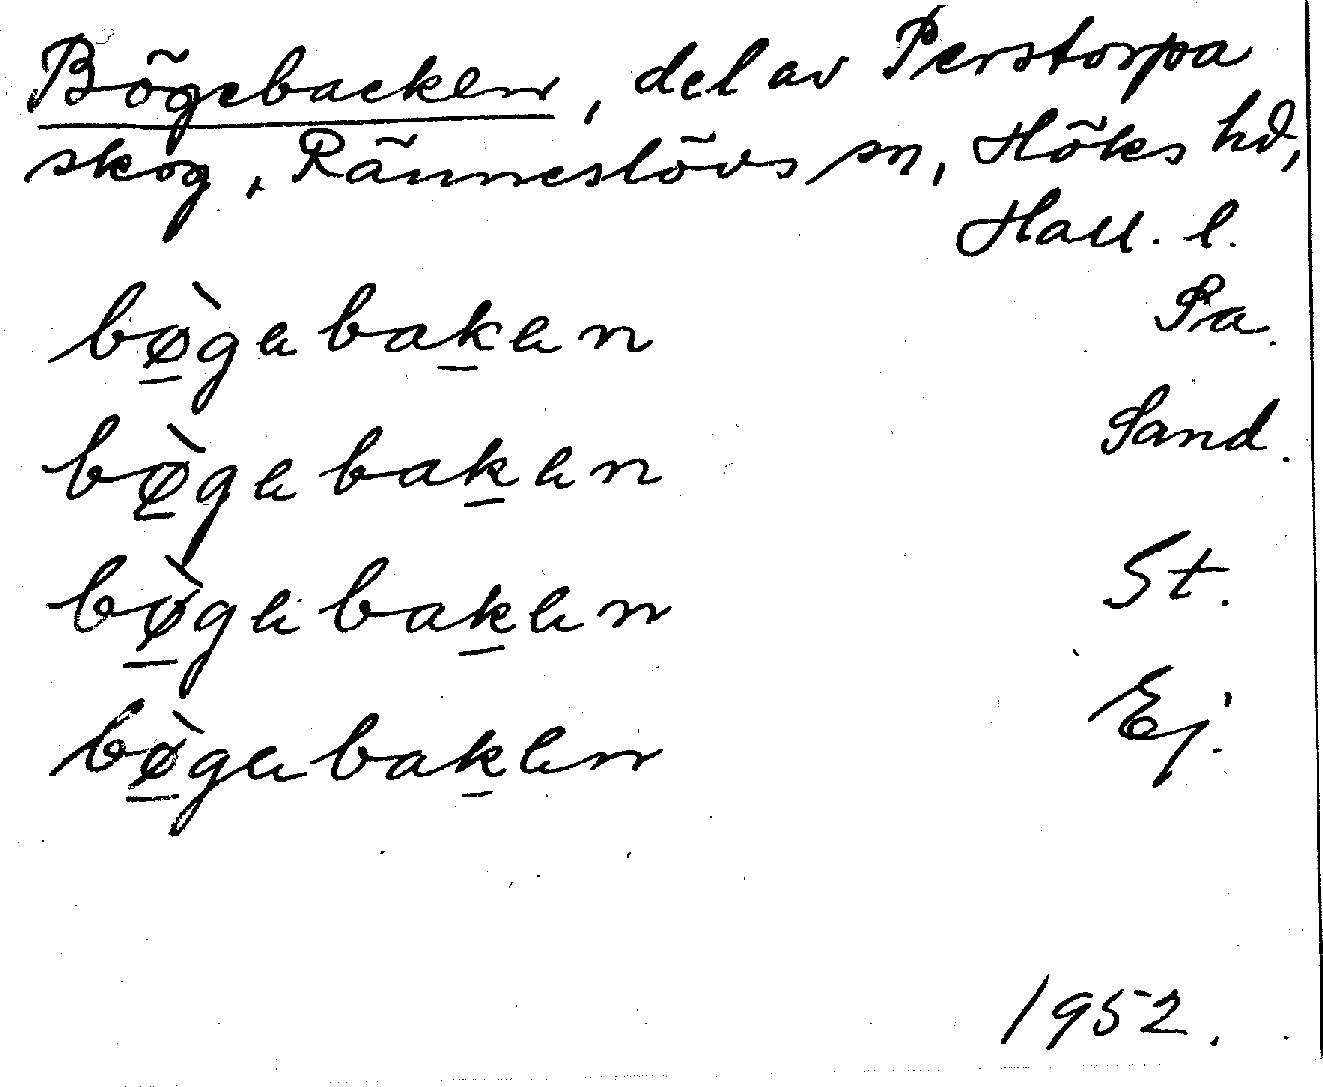 Bögebacken, del av Perstorpa
skog, Ränneslövs sn, Höks hd,
Hall. l.
bø̀gebaken Pa.
bø̀gebaken Sand.
bø̀gebaken St.
bø̀gebaken Ej.
1952.